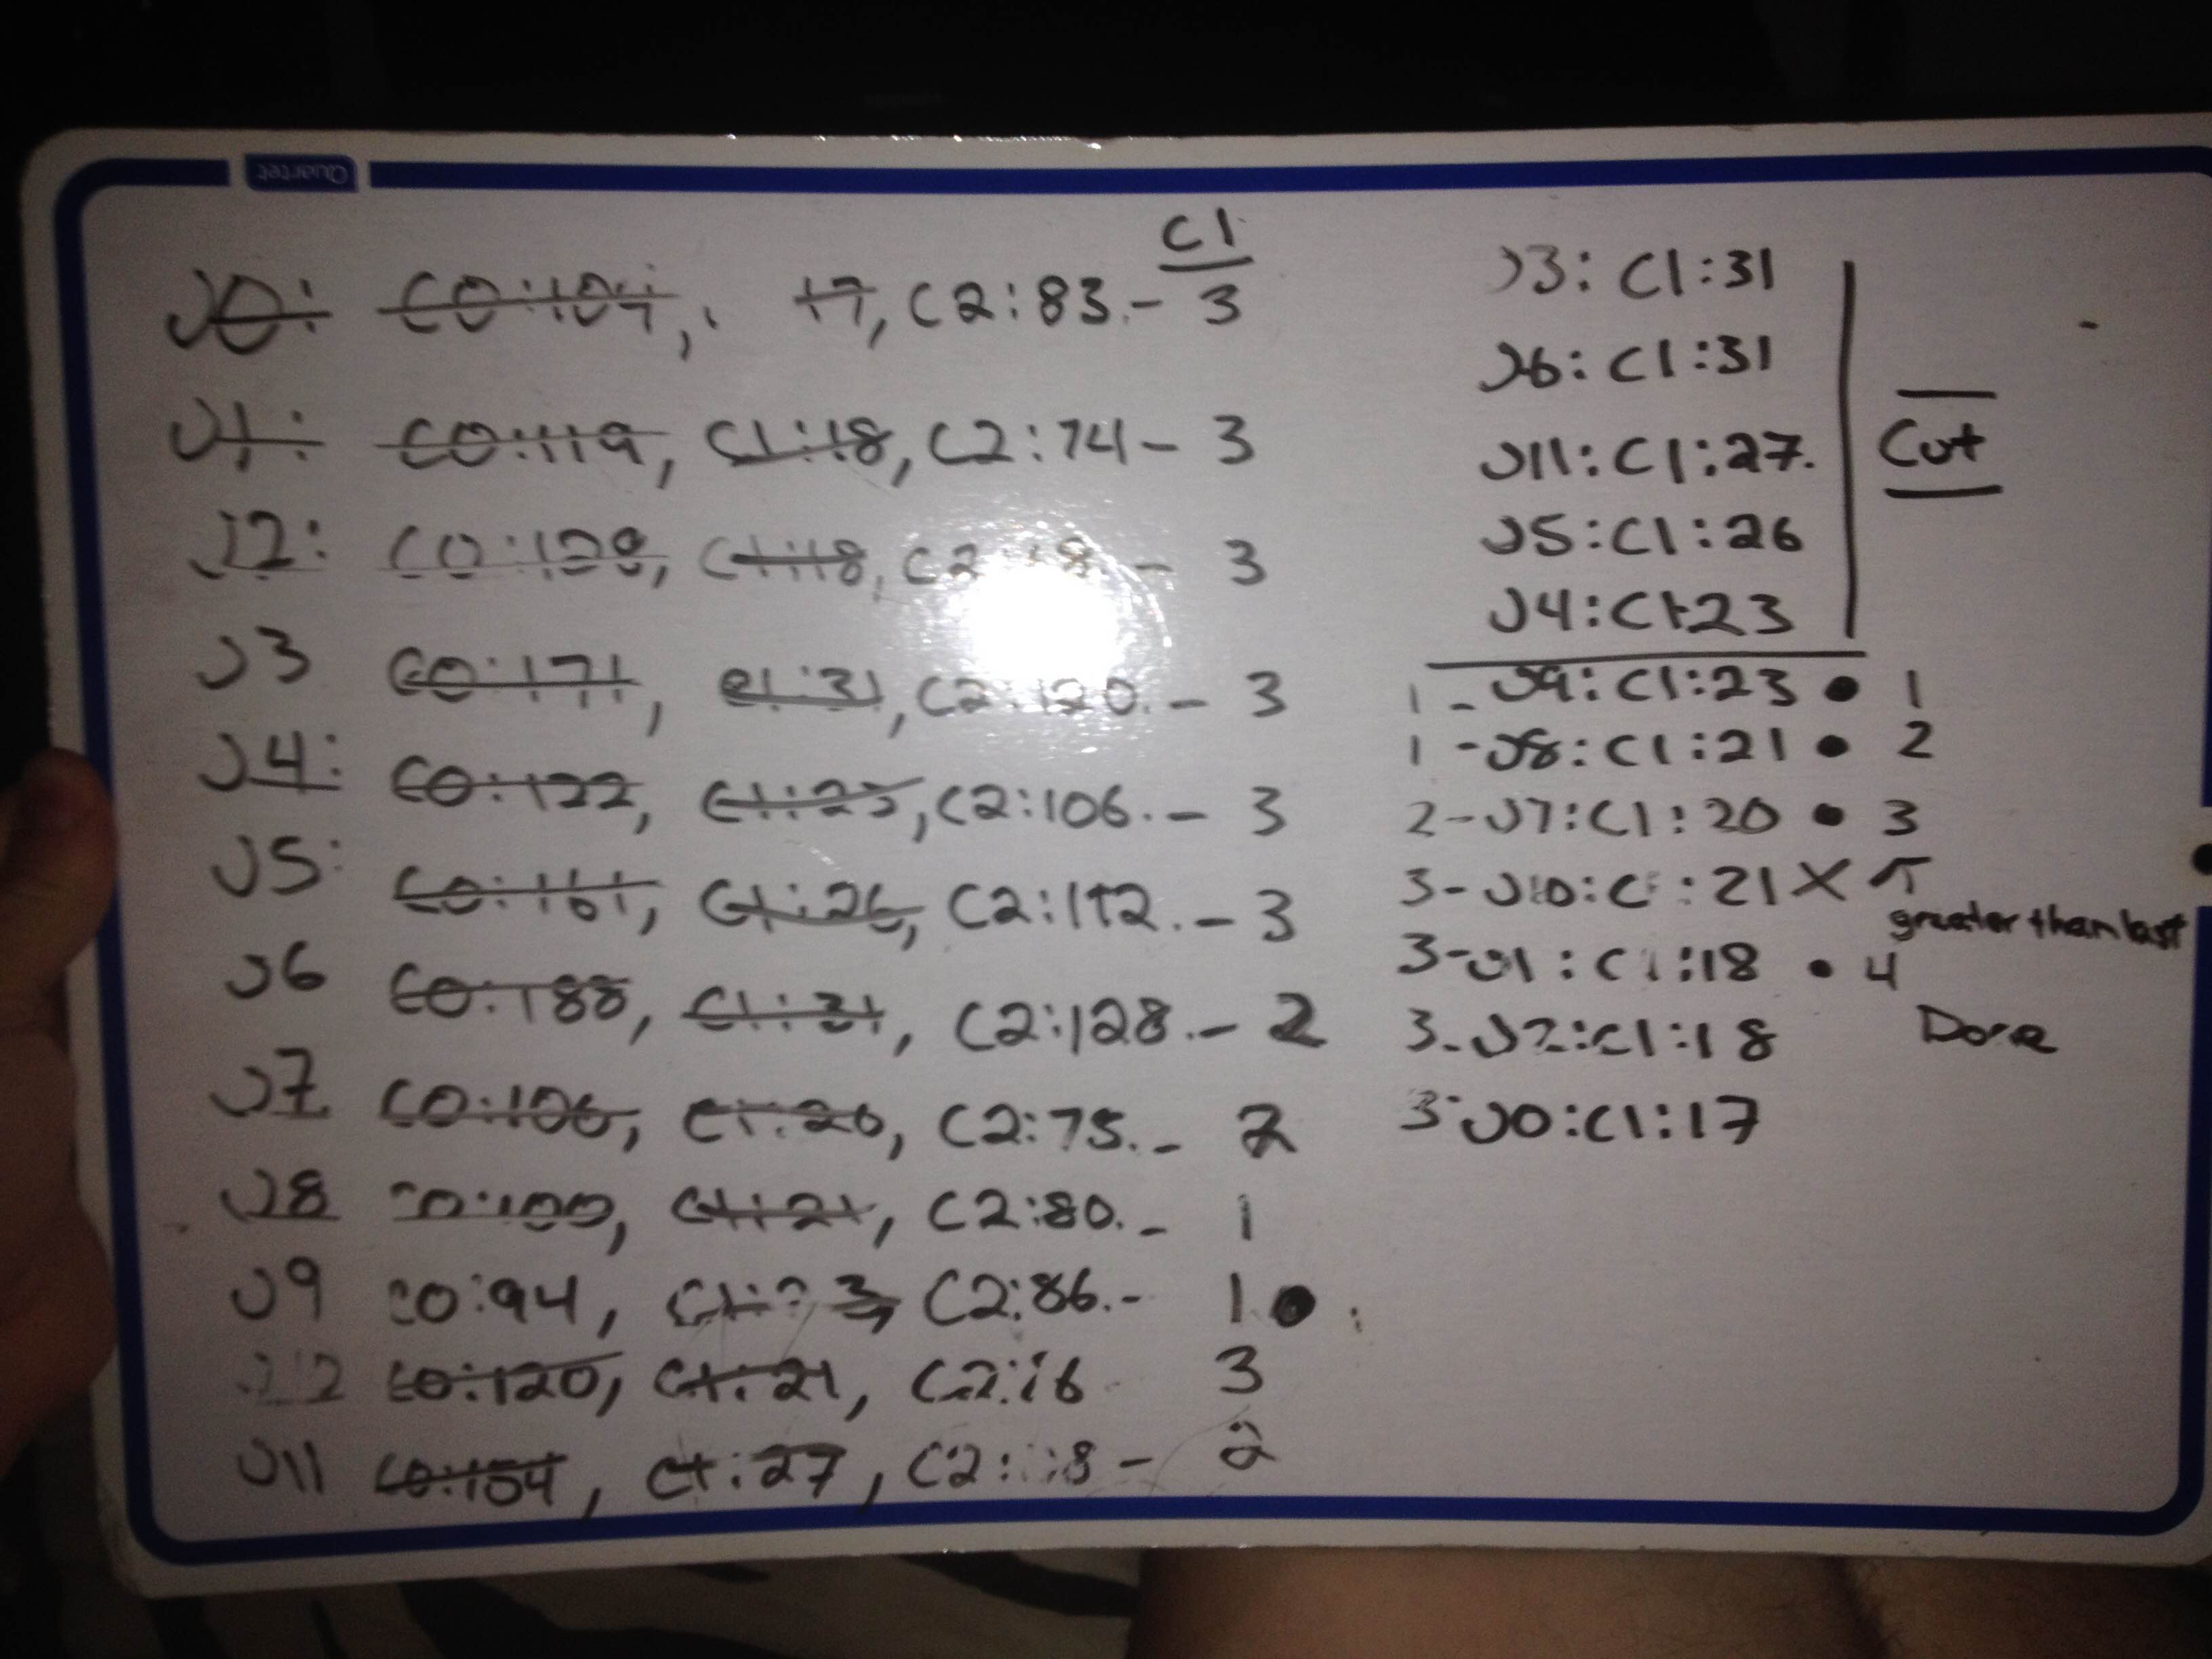 Quartet
C1
J0: C0:104, 17, C2:83.- 3
J1: C0:119, C1:18, C2:74- 3
J2: C0:128, C1:18, C2 - 3
J3 C0:171, C1:31, C2:120.- 3
J4: C0:122, C1:23, C2:106.- 3
J5: C0:161, C1:26, C2:112.- 3
J6 C0:188, C1:31, C2:128.- 2
J7 C0:106, C1:20, C2:75.- 2
J8 C0:100, C1:21, C2:80.- 1
J9 C0:94, C1:23, C2:86.- 1
C0:120, C1:21, C2: 3
J11 C0:154, C1:27, C2: - 2
J3:C1:31
J6:C1:31
J11:C1:27.
J5:C1:26
J4:C1:23
Cut
1-J9:C1:23 • 1
1-J8:C1:21 • 2
2-J7:C1:20 • 3
3-J10:C1:21 X ↑
greater than last
3-J1:C1:18 • 4
3-J2:C1:18 Done
3-J0:C1:17